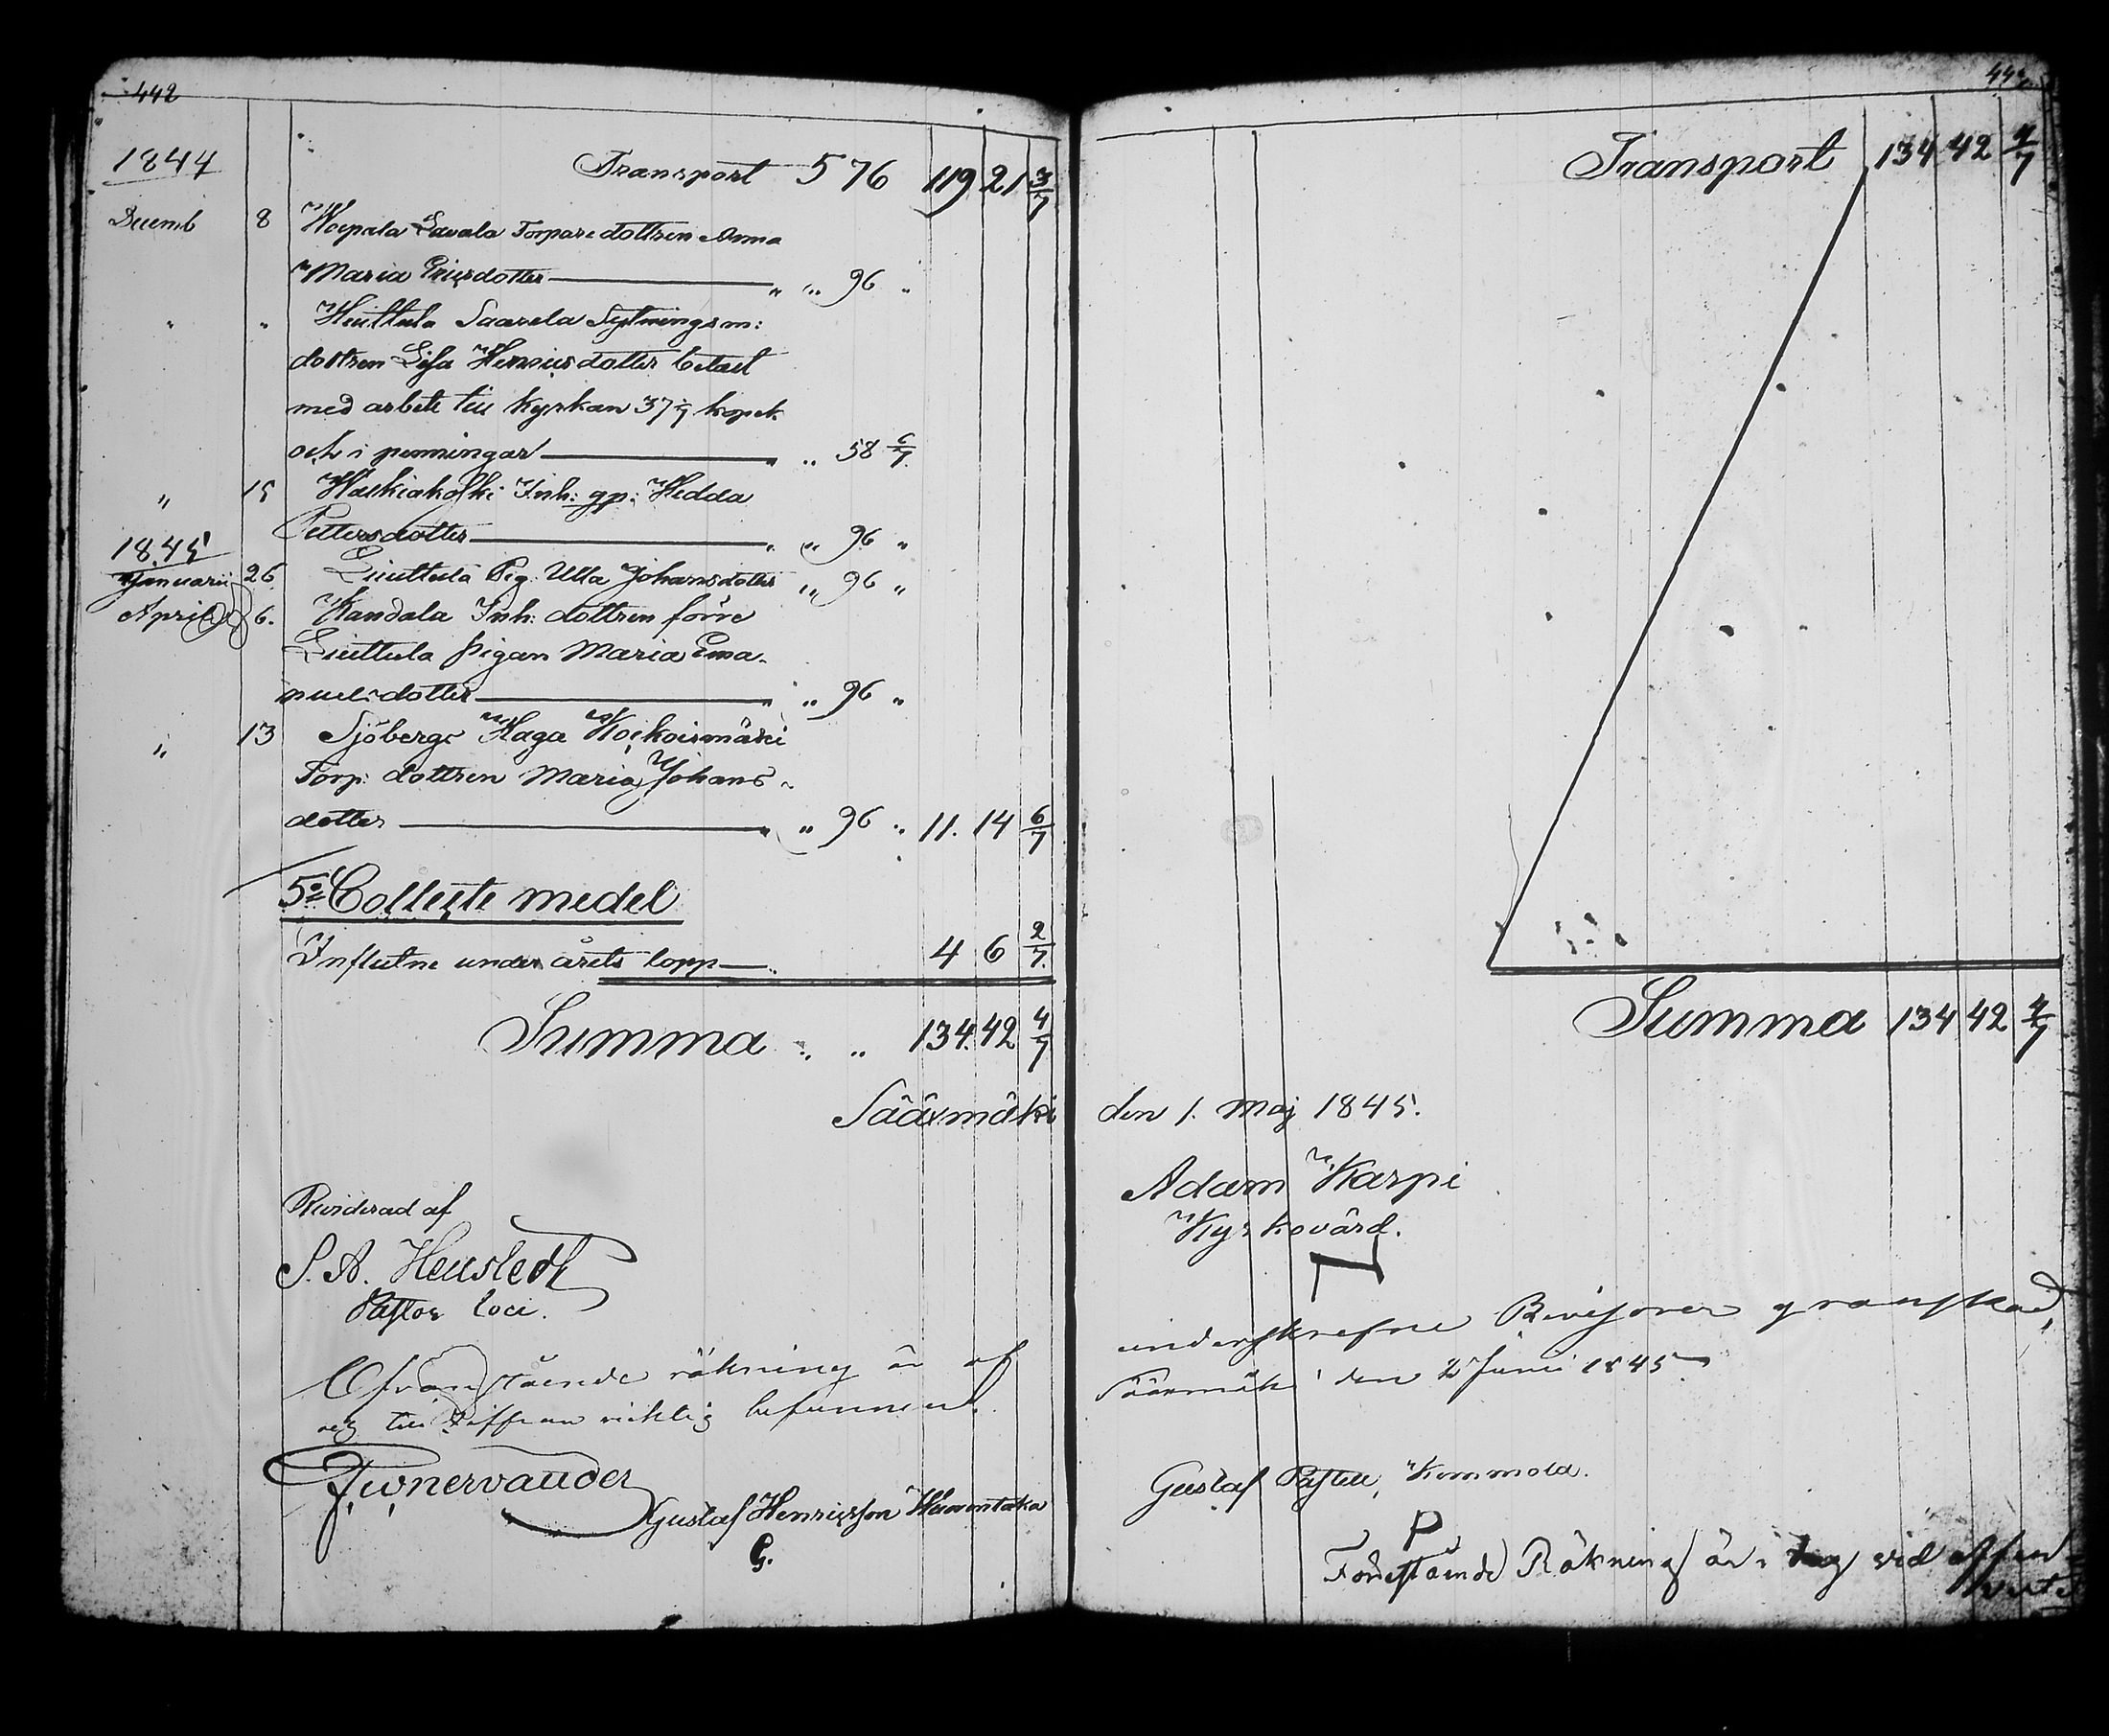 442
1844 Transport 576 119 21 3/7
Decemb 8 Woipala Lavala Torpare dottren Anna
Maria Ericsdotter " " 96 "
" " Huittula Saarela Sytningsm:
dottren Lisa Henricsdotter betalt
med arbete till kyrkan 37 1/7 kopek
och i penningar " " 58 6/7
" 15 Waskiakoski Inh: gp: Hedda
Pettersdotter " " 96 "
1845
Januarii 26 Liuttula Pig. Ulla Johansdotter " 96 "
April 6. Kandala Inh: dottren förre
Liuttula pigan Maria Ema-
nuelsdotter " " 96 "
" 13 Sjöbergs Haga
Torp: dottren Maria Johans-
dotter " " 96 " 11. 14 6/7
5o Collecte medel
Influtne under årets lopp 4 6 2/7
Summa " " 134. 42 4/7
Sääxmäki
Reviderad af
S. A. Hellstedt
Pastor loci.
Ofvanstående räkning är af
och till Siffran riktig befunnen.
Gustaf Henricsson
G.
Transport 134 42 4/7
Summa 134 42 4/7
den 1. Maj 1845.
Adam Karpi
Kyrkovärd.
underskrefne Revisorer granskad,
Sääxmäki den 2 Junii 1845
Gustaf Pastell, Kommola.
P
Förestående Räkning är i dag vid offen